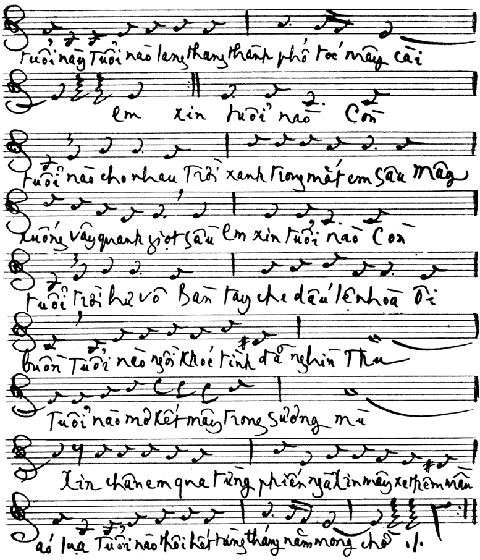 tuổi này Tuổi nào lang thang thành phố tóc mây cài
em xin tuổi nào Còn
tuổi nào cho nhau Trời xanh trong mắt em sâu Mây
xuống vây quanh giọt sầu Em xin tuổi nào Còn
tuổi trời hư vô Bàn tay che dấu lệ nhoà Ôi
buồn Tuổi nào ngồi khóc tình đã nghìn Thu
Tuổi nào mơ kết mây trong sương mù
Xin chân em qua từng phiến ngà Xin mây xe thêm màu
áo lụa Tuổi nào thôi hết từng tháng năm mong chờ ./.